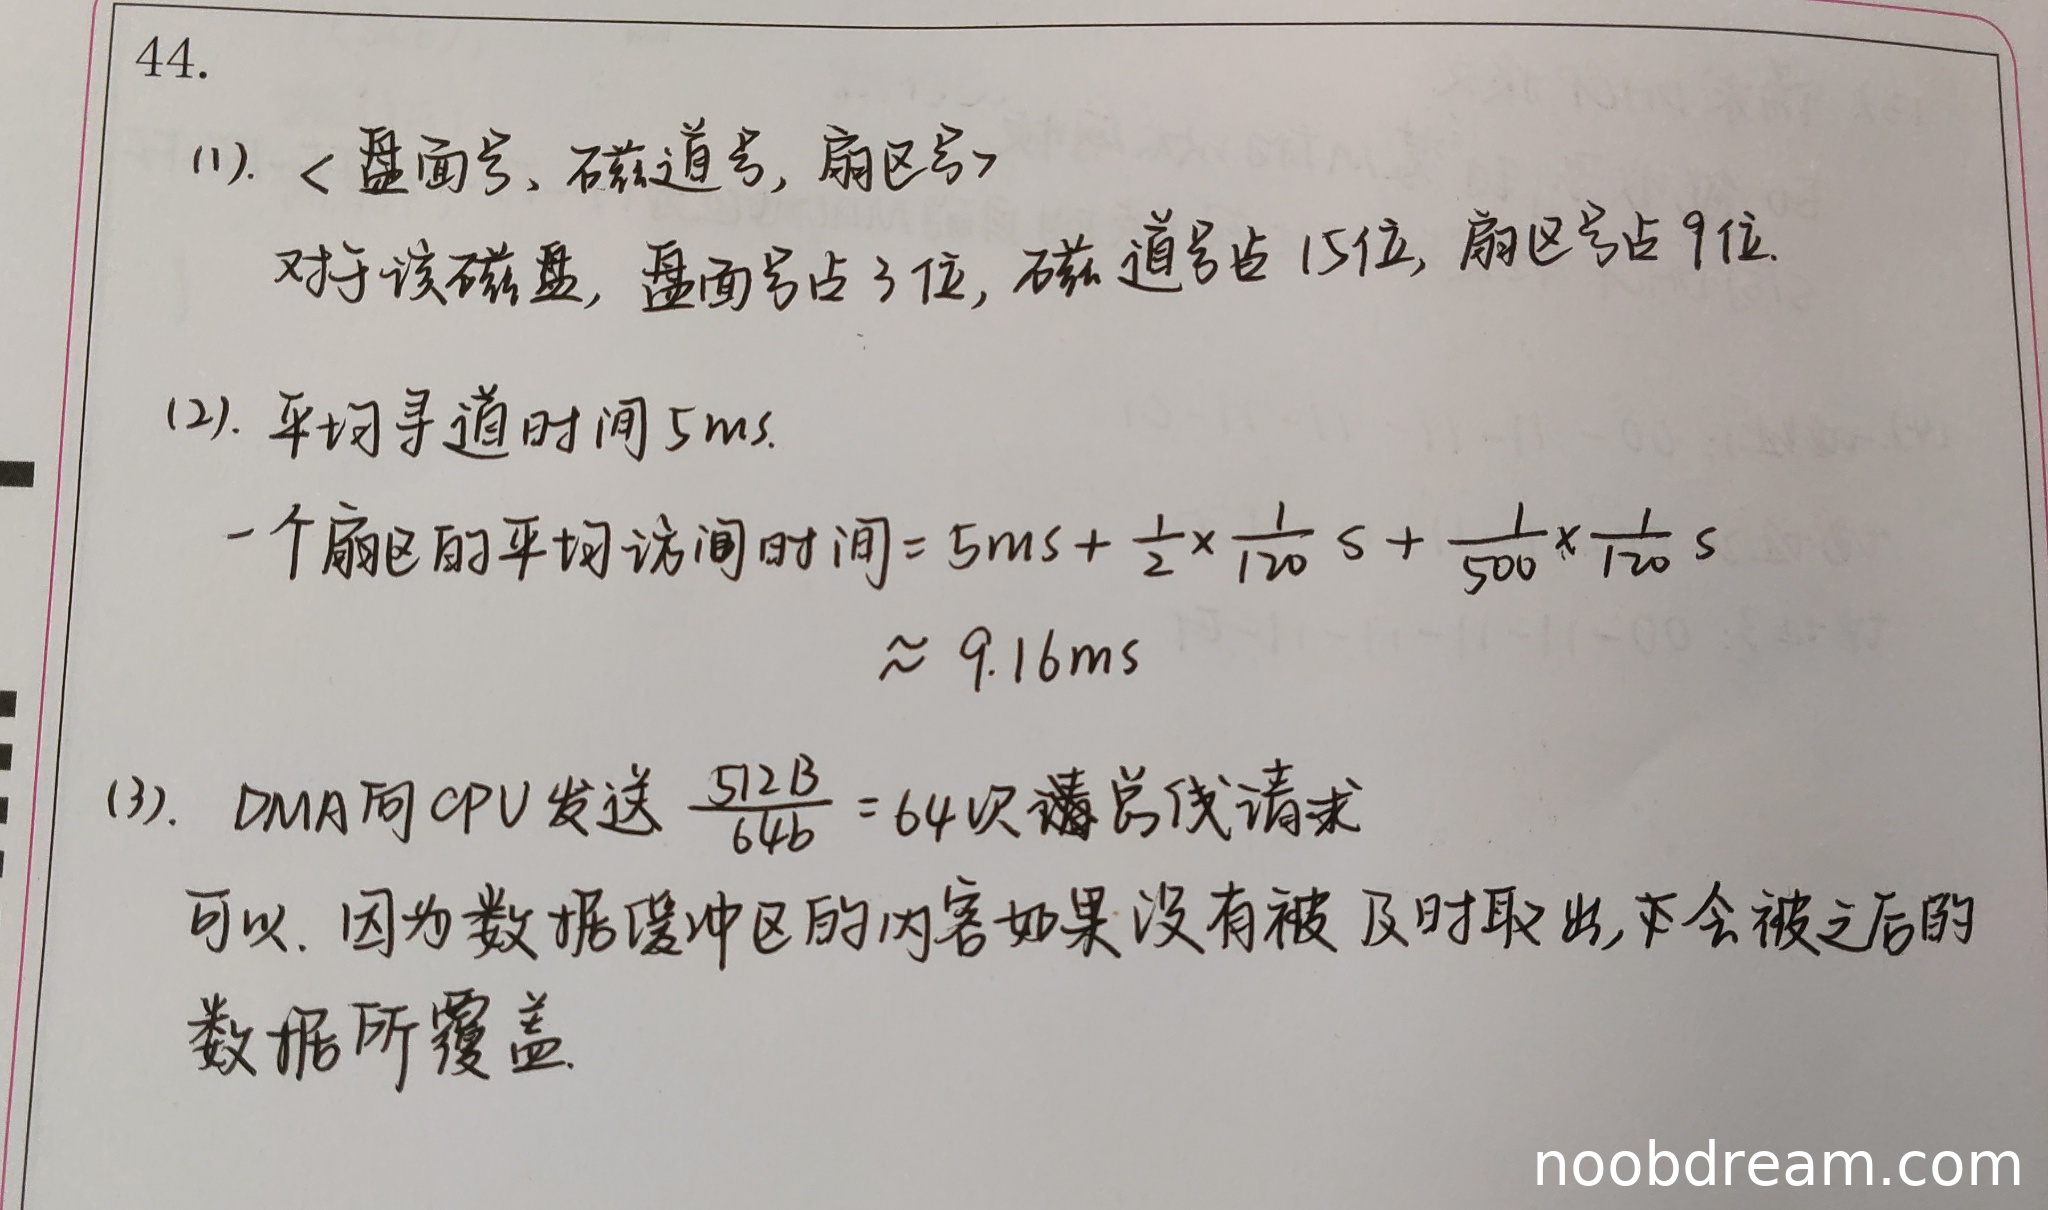 44.
(1). <盘面号、磁道号, 扇区号>
对于该磁盘, 盘面号占3位, 磁道号占15位, 扇区号占9位.
(2). 平均寻道时间5ms.
一个扇区的平均访问时间 = 5ms + 1/2 × 1/120 s + 1/500 × 1/120 s
≈ 9.16ms
(3). DMA向CPU发送 512B/64b = 64次总线请求
可以. 因为数据缓冲区的内容如果没有被及时取出, 不会被之后的
数据所覆盖.
noobdream.com